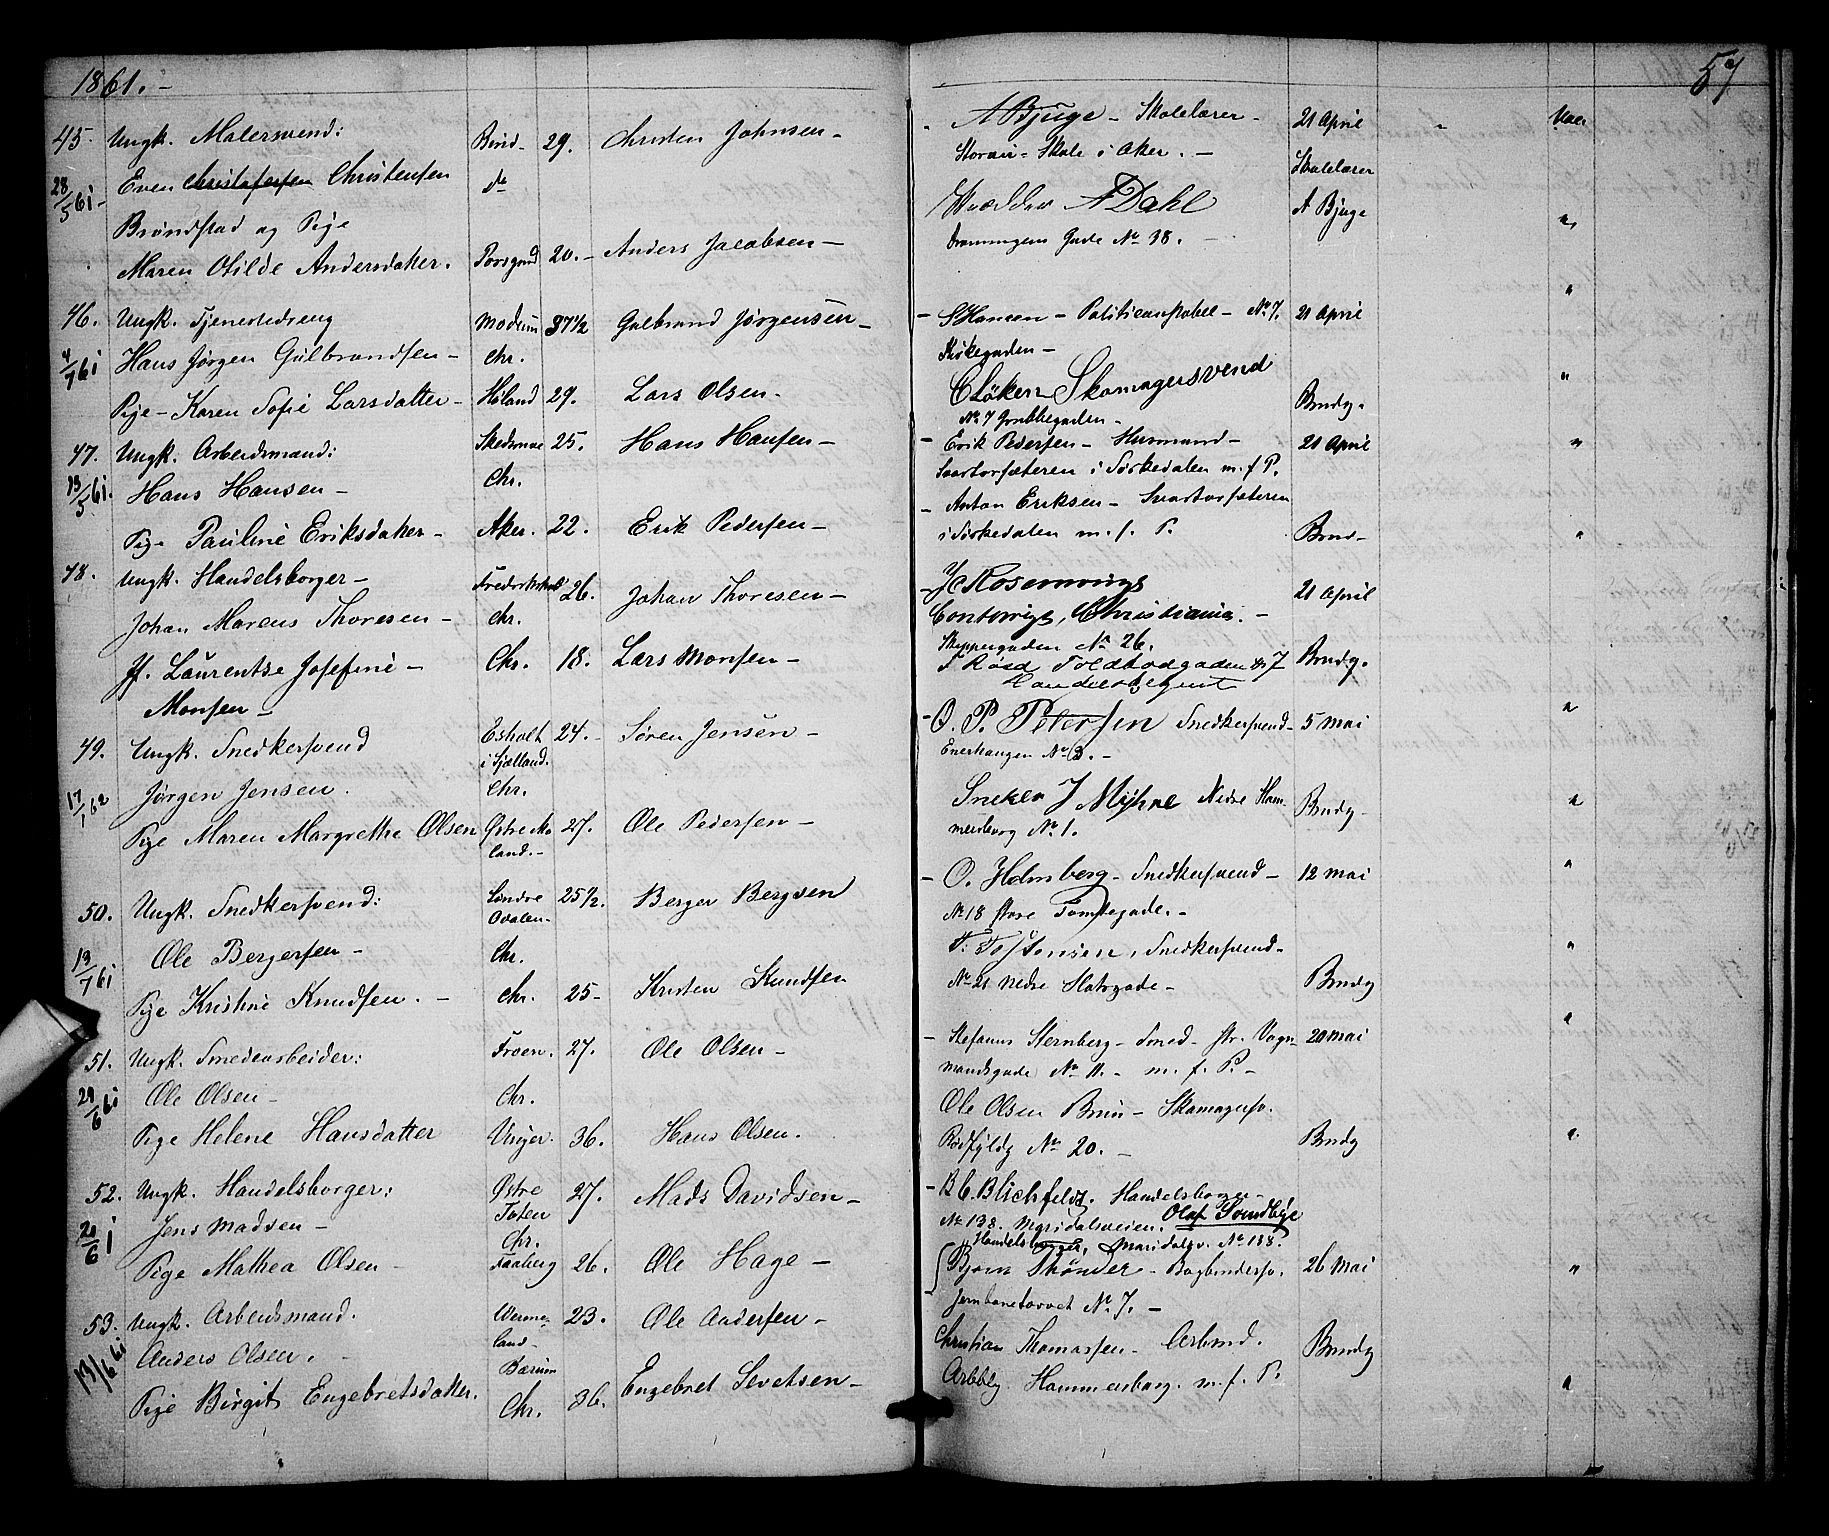 1861.-
57
45. Ungk. Malersvend: Brind- 29. Christen Johnsen-
28/5 61- Even Christofersen Christensen do
Brøndstad og Pige
Maren Otilde Andersdatter. Porsgrnd 20.- Anders Jacobsen-
46. Ungk. Tjenestedreng Modum 37½ Gulbrand Jørgensen-
4/7 61 Hans Jørgen Gulbrandsen- Chr.
Pige- Karen Sofie Larsdatter- Høland 29. Lars Olsen.
47. Ungk. Arbeidsmand: Skedsmoe 25. Hans Hansen-
13/5 61. Hans Hansen- Chr.
Pige Pauline Eriksdatter- Aker. 22. Erik Pedersen-
48. Ungk. Handelsborger- Fredrikshald 26. Johan Thoresen-
Johan Marcus Thoresen- Chr.
Jf. Laurentse Josefine- Chr. 18. Lars Monsen-
Monsen-
49. Ungk. Snedkersvend Esholt 24.- Søren Jensen-
i Sjælland.
17/1 62 Jørgen Jensen. Chr.
Pige Maren Margrethe Olsen Østre Mo 27. Ole Pedersen-
land.-
50. Ungk. Snedkersvend: Søndre 25½. Berger Bergsen
Odalen-
13/7 61 Ole Bergersen- Chr.
Pige Kristine Knudsen.- Chr. 25- Kristen Knudsen
51. Ungk. Smedearbeider: Froen. 27. Ole Olsen-
29/6 61 Ole Olsen- Chr.
Pige Helene Hansdatter Vinger. 36. Hans Olsen.
52. Ungk. Handelsborger: Østre 27. Mads Davidsen-
Toten
20/6 61 Jens Madsen- Chr.
Pige Mathea Olsen- Faaberg 26. Ole Hage-
53. Ungk. Arbeidsmand. Werme- 23. Ole Andersen-
land-
13/6 61 Anders Olsen.- Bærum
Pige Birgit Engebretsdatter. Chr. 36. Engebret Sevetsen-
A Bjuge- Skolelærer- 21 April
Skole i Aker.- Skolelærer
A Dahl A Bjuge
Drammygens Gade No 18.
- S Hansen- Politieonstabel- No 7. 21 April
Kirkegaden-
C Løken Skomagersvend
No 7 Grubbegaden- Brudg.
- Erik Pedersen- Husmand- 21 April
Svartorsæteren i Sørkedalen m. f. P.
- Anton Eriksen- Svartorsæteren
i Sørkedalen m. f. P. Brud-
Contorist, Christiania.- 21 April
Skippergaden No 26.
Toldbodgaden No 7 Brudg.
Handelsbetjent
- O. P. Petersen Snedkersvend- 5 Mai
Enerhaugen No 3.-
Sneker J Myhre Nedre Ham-
mersborg No 1. Brudg-
- O. Holmberg- Snedkersvend- 12 Mai
No 18 store Tomtegade.-
T. Tostensen, Snedkersvend-
No 21 Nedre Slotsgade- Brudg
- Stefanus Sternberg- Smed- str. Vogn- 20 Mai
mandsgade No 11.- m. f. P.-
Ole Olsen Bruu- Skomagersv.
Rødfyldg No 20.- Brudg
- B C. Blichfeldt. Handelsborger-
No 138. Maridalsveien. Olaf Sundbye
Handelsborger, Maridalsv. No 118.
Bjørn Skønder- Bogbindersv. 26 Mai
Jernbanetorvet No 7.-
Christian Thomassen- Arbmd. Brudg
Arbbg Hammersborg. m. f. P.